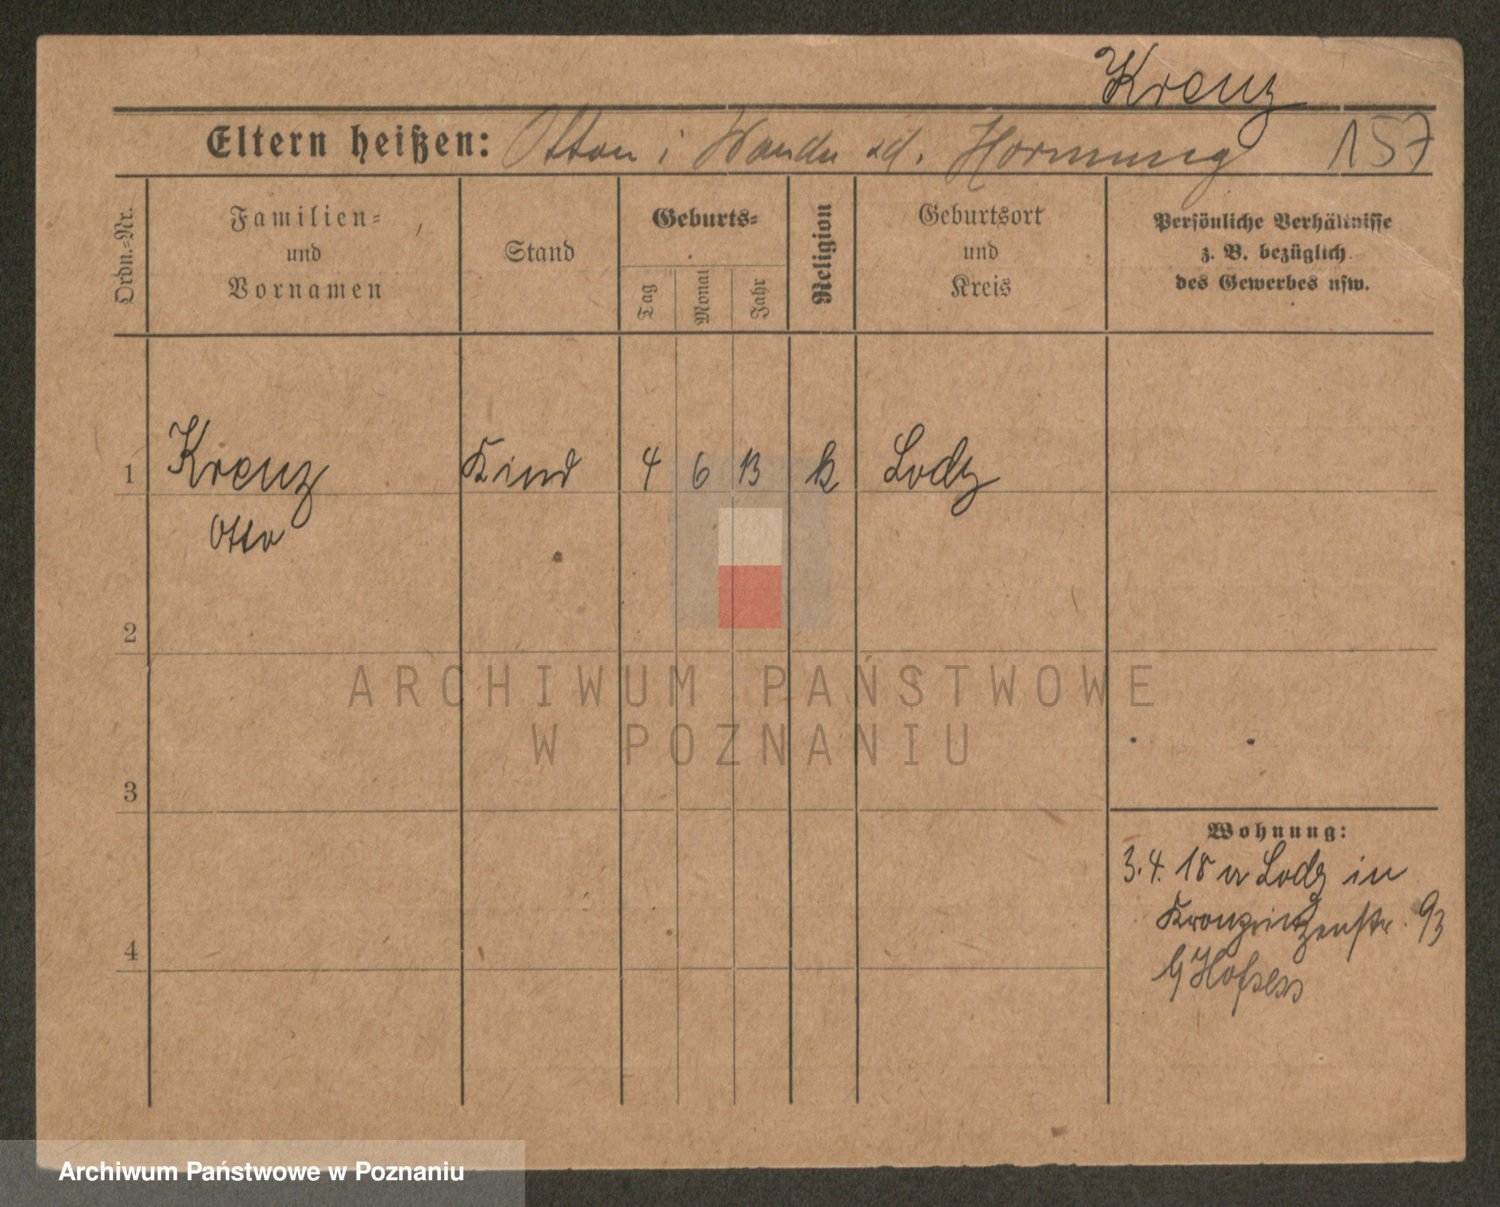 Krenz
Eltern heißen: Otton i Wanda zd. Hornung 157
Ordn.-Nr.
Familien- und Vornamen
Stand
Geburts-
Tag
Monat
Jahr
Religion
Geburtsort und Kreis
Persönliche Verhältnisse
z. B. bezüglich
des Gewerbes usw.
1 Krenz Kind 4 6 13 k Lodz
Otto
2
3
4
Wohnung:
3. 4. 18 v Lodz in
Kronprinzenstr. 93
b/
ARCHIWUM PAŃSTWOWE
W POZNANIU
Archiwum Państwowe w Poznaniu